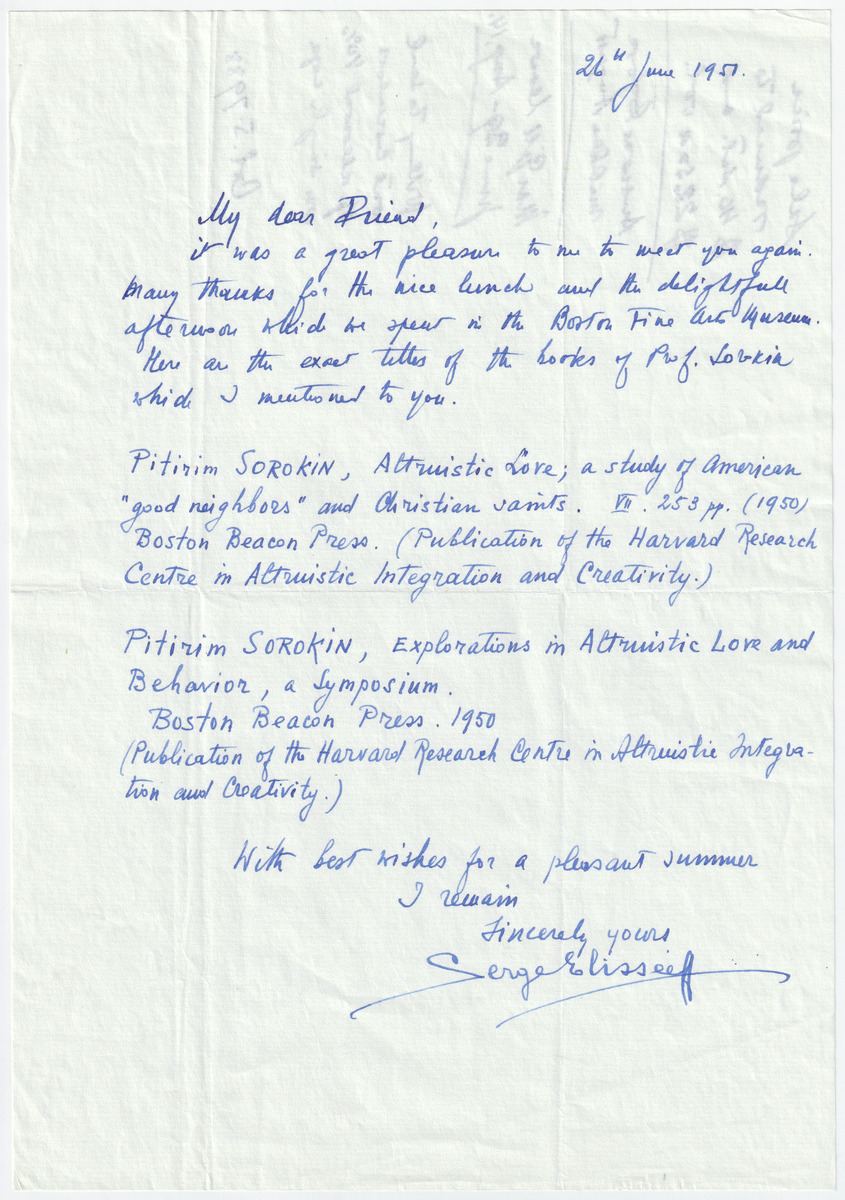 26th June 1951.
My dear Friend,
it was a great pleasure to me to meet you again.
Many thanks for the nice lunch and the delightfull
afternoon which we spent in the Boston Fine Arts Museum.
Here are the exact titles of the books of Prof. Sorokin
which I mentioned to you.
Pitirim SOROKIN, Altruistic Love; a study of American
"good neighbors" and Christian saints. VII. 253 pp. (1950)
Boston Beacon Press. (Publication of the Harvard Research
Centre in Altruistic Integration and Creativity.)
Pitirim SOROKIN, Explorations in Altruistic Love and
Behavior, a Symposium.
Boston Beacon Press. 1950
(Publication of the Harvard Research Centre in Altruistic Integra-
tion and Creativity.)
With best wishes for a pleasant summer
I remain
Sincerely yours
Serge Elisséeff